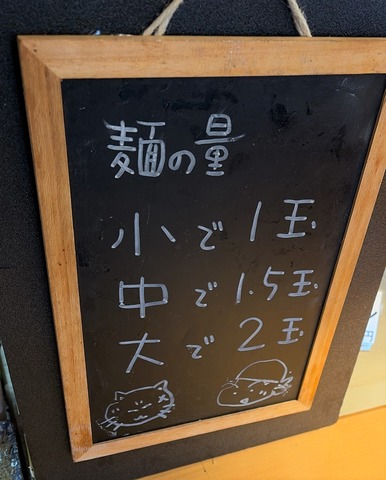 麺の量
小で1玉
中で1.5玉
大で2玉